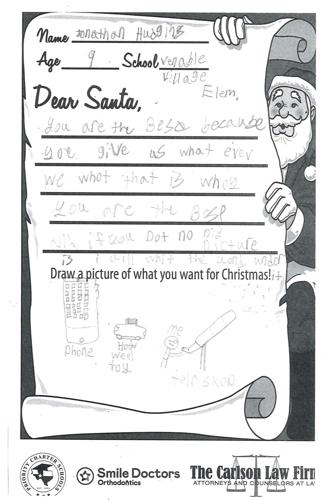 Name Jonathan Hudgins
Age 9 School venable
village
Elem.
Dear Santa,
You are the Besz because
you give us what ever
we whot that is whoy
you are the Besl
if you Dot no my
Picture
is i will whit the word under
it
Draw a picture of what you want for Christmas!
me
phone
Hot
weel
toy
telaskop
PRIORITY CHARTER SCHOOLS
Smile Doctors
Orthodontics
The Carlson Law Firm
ATTORNEYS AND COUNSELORS AT LA